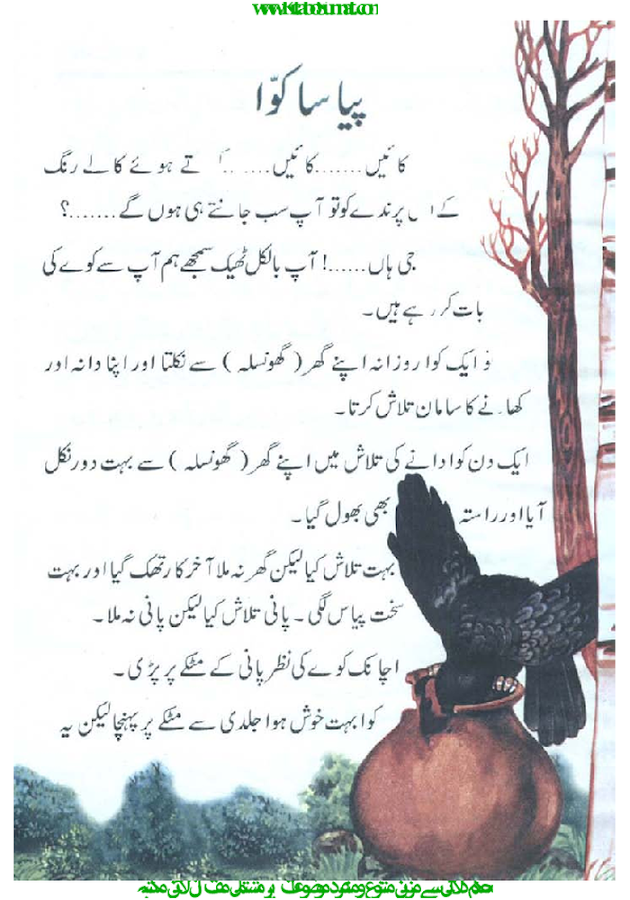 پیاسا کوّا
کائیں.......کائیں....... تے ہوئے کالے رنگ
کے پرندے کو تو آپ سب جانتے ہی ہوں گے.......؟
جی ہاں......! آپ بالکل ٹھیک سمجھے ہم آپ سے کوے کی
بات کر رہے ہیں۔
ایک کوا روزانہ اپنے گھر ( گھونسلہ ) سے نکلتا اور اپنا دانہ اور
کھانے کا سامان تلاش کرتا۔
ایک دن کوا دانے کی تلاش میں اپنے گھر ( گھونسلہ ) سے بہت دور نکل
آیا اور راستہ بھی بھول گیا۔
بہت تلاش کیا لیکن گھر نہ ملا آخر کار تھک گیا اور بہت
سخت پیاس لگی ۔ پانی تلاش کیا لیکن پانی نہ ملا۔
اچانک کوے کی نظر پانی کے مٹکے پر پڑی۔
کوا بہت خوش ہوا جلدی سے مٹکے پر پہنچا لیکن یہ